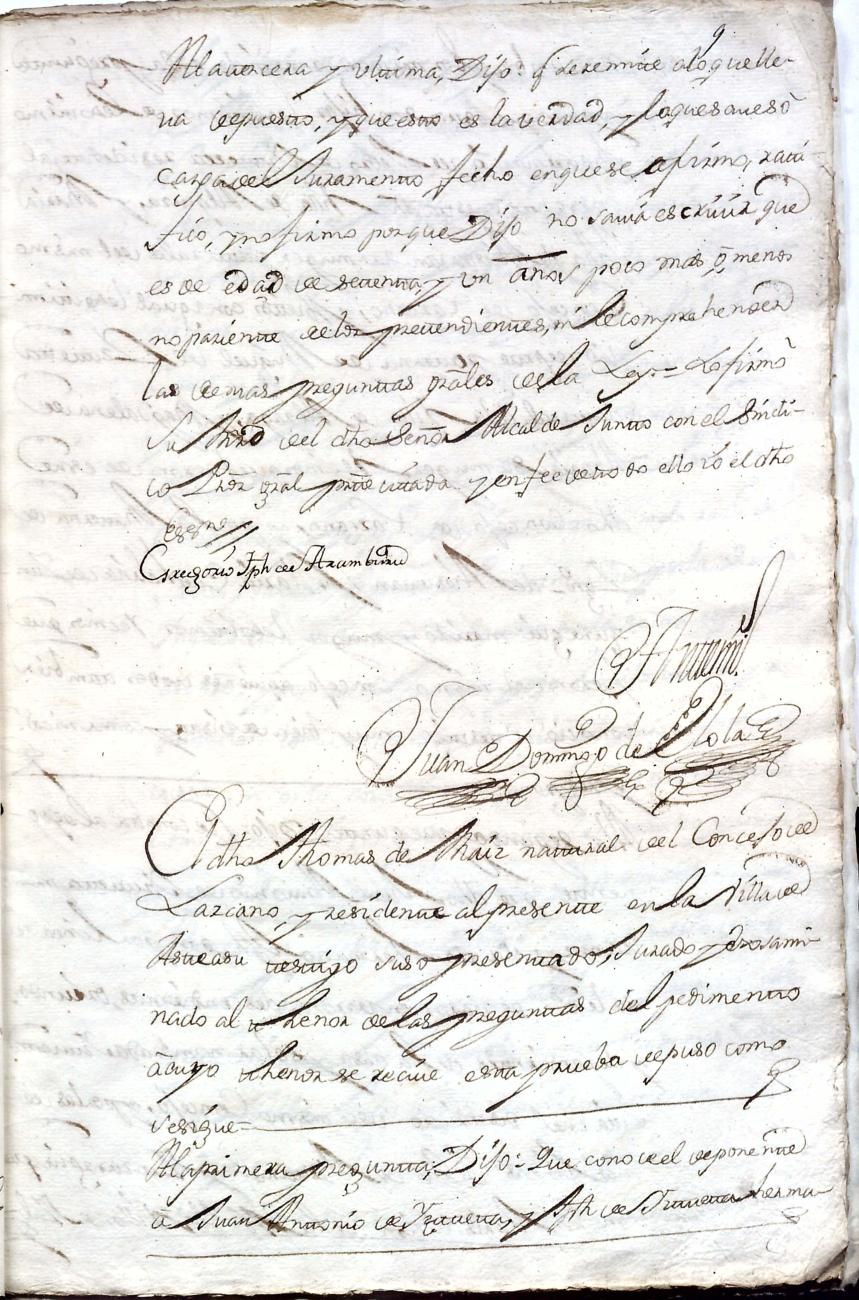 9
A la tercera y ultima, Dijo: q̃ se remite a lo que lle-
va depuesto, y que esto es la verdad, y lo que save só
cargo del Juramento fecho en que se afirmo, rati-
fico, y no firmo porque Dijo no savia escriuir que
es de edad de setenta y un años poco mas ô menos
no pariente de los pretendientes, ni le comprehenden
las demas preguntas grãles de la Ley= Lo firmó
su Mrd del dho Señor Alcalde Junto con el Sindi-
co Pror gral y en fee de todo ello yo el dho
essno
Gregorio Jph de Arambur
Antemi
Juan Domingo de Olola
El dho Thomas de natural del Concejo de
Lazcano, y residente al presente en la Villa de
Asteasu testigo suso presentado, Jurado y exsami-
nado al thenor de las preguntas del pedimento
â cuyo thenor se reciue esta prueba depuso como
se sigue=
A la primera pregunta, Dijo: Que conoce el deponente
a Juan Antonio de Yztueta, y Jph de Yztueta herma-